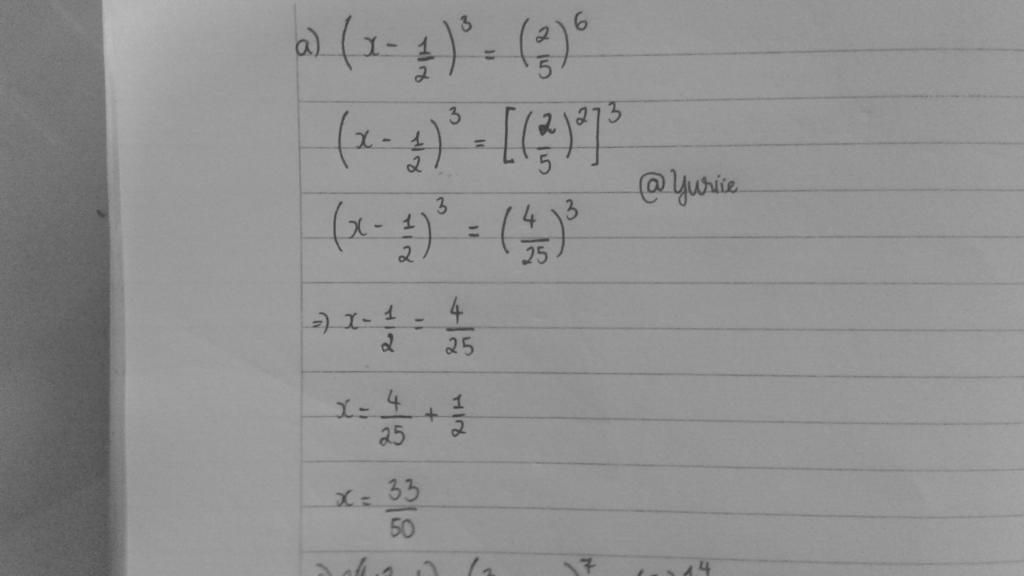 a) (x - 1/2)^3 = (2/5)^6
(x - 1/2)^3 = [(2/5)^2]^3
@Yuriie
(x - 1/2)^3 = (4/25)^3
=) x - 1/2 = 4/25
x = 4/25 + 1/2
x = 33/50